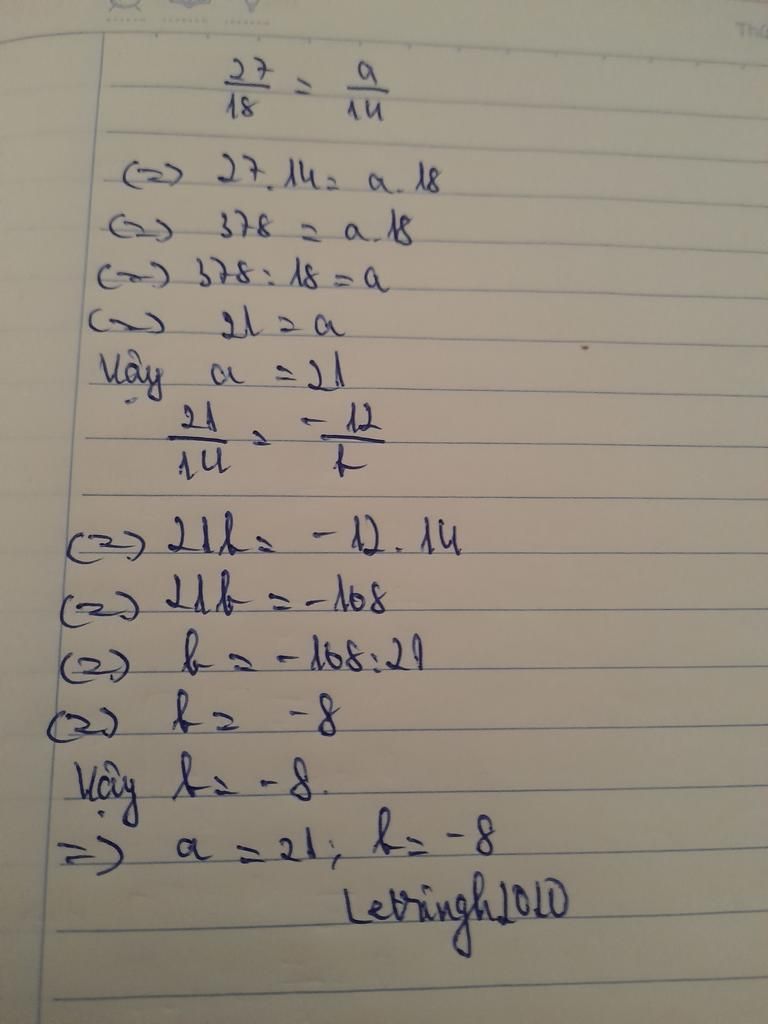 27/18 = a/14
(=) 27.14 = a.18
(=) 378 = a.18
(=) 378 : 18 = a
(=) 21 = a
Vậy a = 21
21/14 = -12/b
(=) 21b = -12.14
(=) 21b = -168
(=) b = -168:21
(=) b = -8
Vậy b = -8.
=) a = 21; b = -8